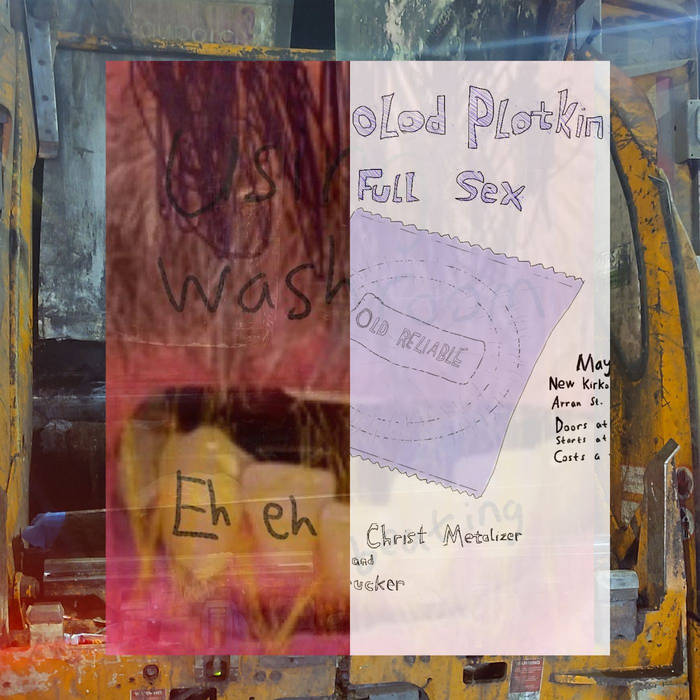 Usin
Wash
Eh eh
olod Plotkin
Full Sex
OLD RELIABLE
May
New Kirk
Arran St.
Doors at
Starts at
Costs a
Christ Metalizer
and
rucker